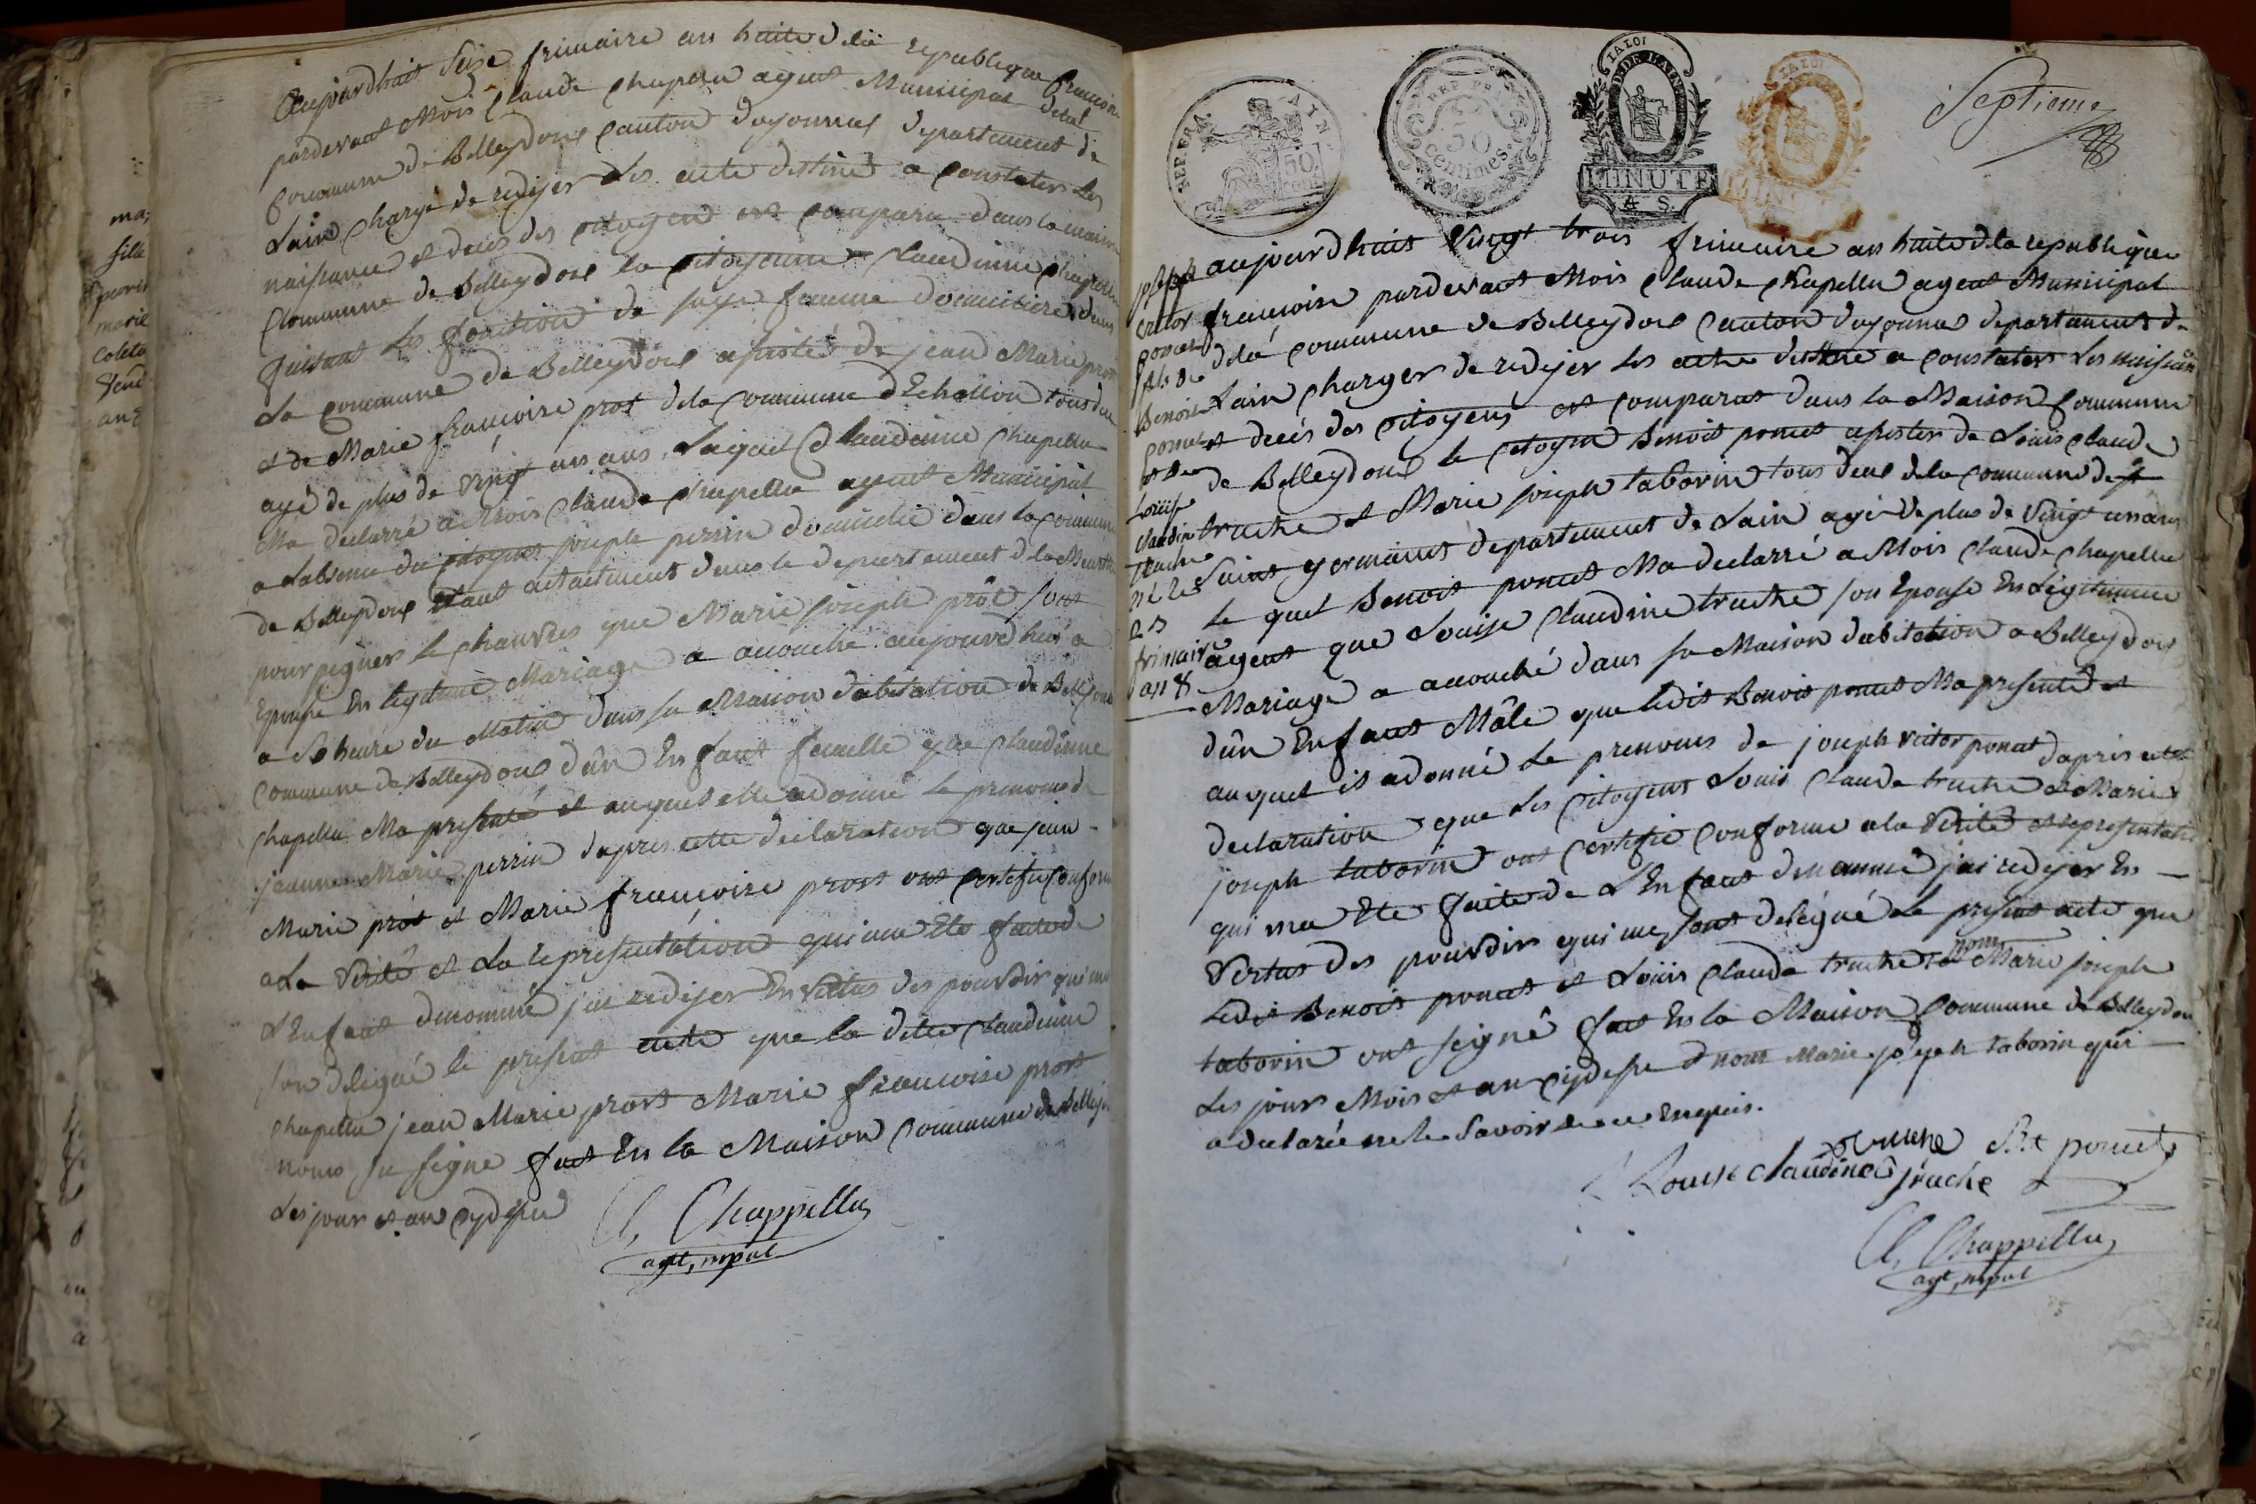 ma;
fille
marie
an 8
aujourdhuit seize frimaire an huite dela republique francoise
pardevant Mois Claude Chapellu agent Municipal dela
Commune de Belleydoux Canton doyonnas departement de
Lain Chargé de redijer les acte destiné a Constater Les
naissance et deces des citoyens est comparu dans la maison
Commune de Belleydoux la citoyenne Claudinne Chapellu
faisant les fonction de sage femme domicilieé dans
La Commune de Belleydoux assisté de jean Marie prost
et de Marie francoise prost dela Commune dEchallon tous deux
agé de plus de vingt un ans, Laquel Claudinne Chapellu
Ma declarré a Mois Claude Chapellu agent Municipal
a Labsence du citoyens joseph perrin domicilié dans la Commune
de Belleydoux Etant actuellement dans le departement dela Meurthe
pour peigner le Chanvres que Marie joseph prôt sont
Epouse En legitime Mariage a accouché aujourdhui a
a heure du Matin dans sa Maison dabitation de Belleydoux
Commune de Belleydoux dûn Enfant femelle que Claudinne
Chapellu Ma presenté et auquel elle a donné le prenoms de
jeanne Marie perrin dapres cette declaration que jean
Marie prôt et Marie francoise prost ont Certifié Conforme
a La verité et La representation qui ma Eté faite de
LEnfant denommé jai redijer En vertus des pouvoir qui me
son delegué le present acte que la dite Claudinne
Chapellu jean Marie prost Marie francoise prost
nons su signe fait En la Maison Commune de Belleydoux
Les jour et an cydessu
Cl. Chappellu
agt, mpal
REP. FRA. AIN
50 CENT.
REP. FRA.
50
Centimes.
LA LOI
MINUTE
A S.
LA LOI
Septieme
joseph
victor
poncet
fils de
Benoit
poncet
et de
Louise
claudin
truche
né le
23
frimaire
an 8.
aujourdhuit vingt trois frimaire an huite dela republique
francoise pardevant Mois Claude Chapellu agent Municipal
dela Commune de Belleydoux Canton doyonnas departement de
Lain Charger de redijer les acte destiné a Constater Les naissance
et deces des citoyens est comparut dans la Maison Commune
de Belleydoux le citoyen Benoit poncet assister de Louis Claude
truche et Marie joseph taborin tous deux dela commune de st
Saint germains departement de Lain agé de plus de vingt un ans
Le quel Benoit poncet Ma declarré a Mois Claude Chapellu
agent que Louise Claudine truche son Epouse En Legitimme
Mariage a accouché dans sa Maison dabitation a Belleydoux
dûn Enfant Mâle que ledit Benoit poncet Ma presenté et
auquel il a donné le prenoms de joseph victor poncet dapres cette
declaration que Les citoyens Louis Claude truche et Marie
joseph taborin ont certifié Conforme a la verité et representation
qui ma Eté faite de LEnfant denommé jai redijer En
vertus des pouvoirs qui me sont delégué Le present acte que
ledit Benoit poncet et Louis Claude truche et nom Marie joseph
taborin ont signé fait En la Maison Commune de Belleydoux
Les jours Mois et an cydessu et nom Marie joseph taborin qui
a declarée ne le savoir de ce Enquis.
truche Bt poncet
Louise claudine truche
Cl. Chappellu
agt, mpal